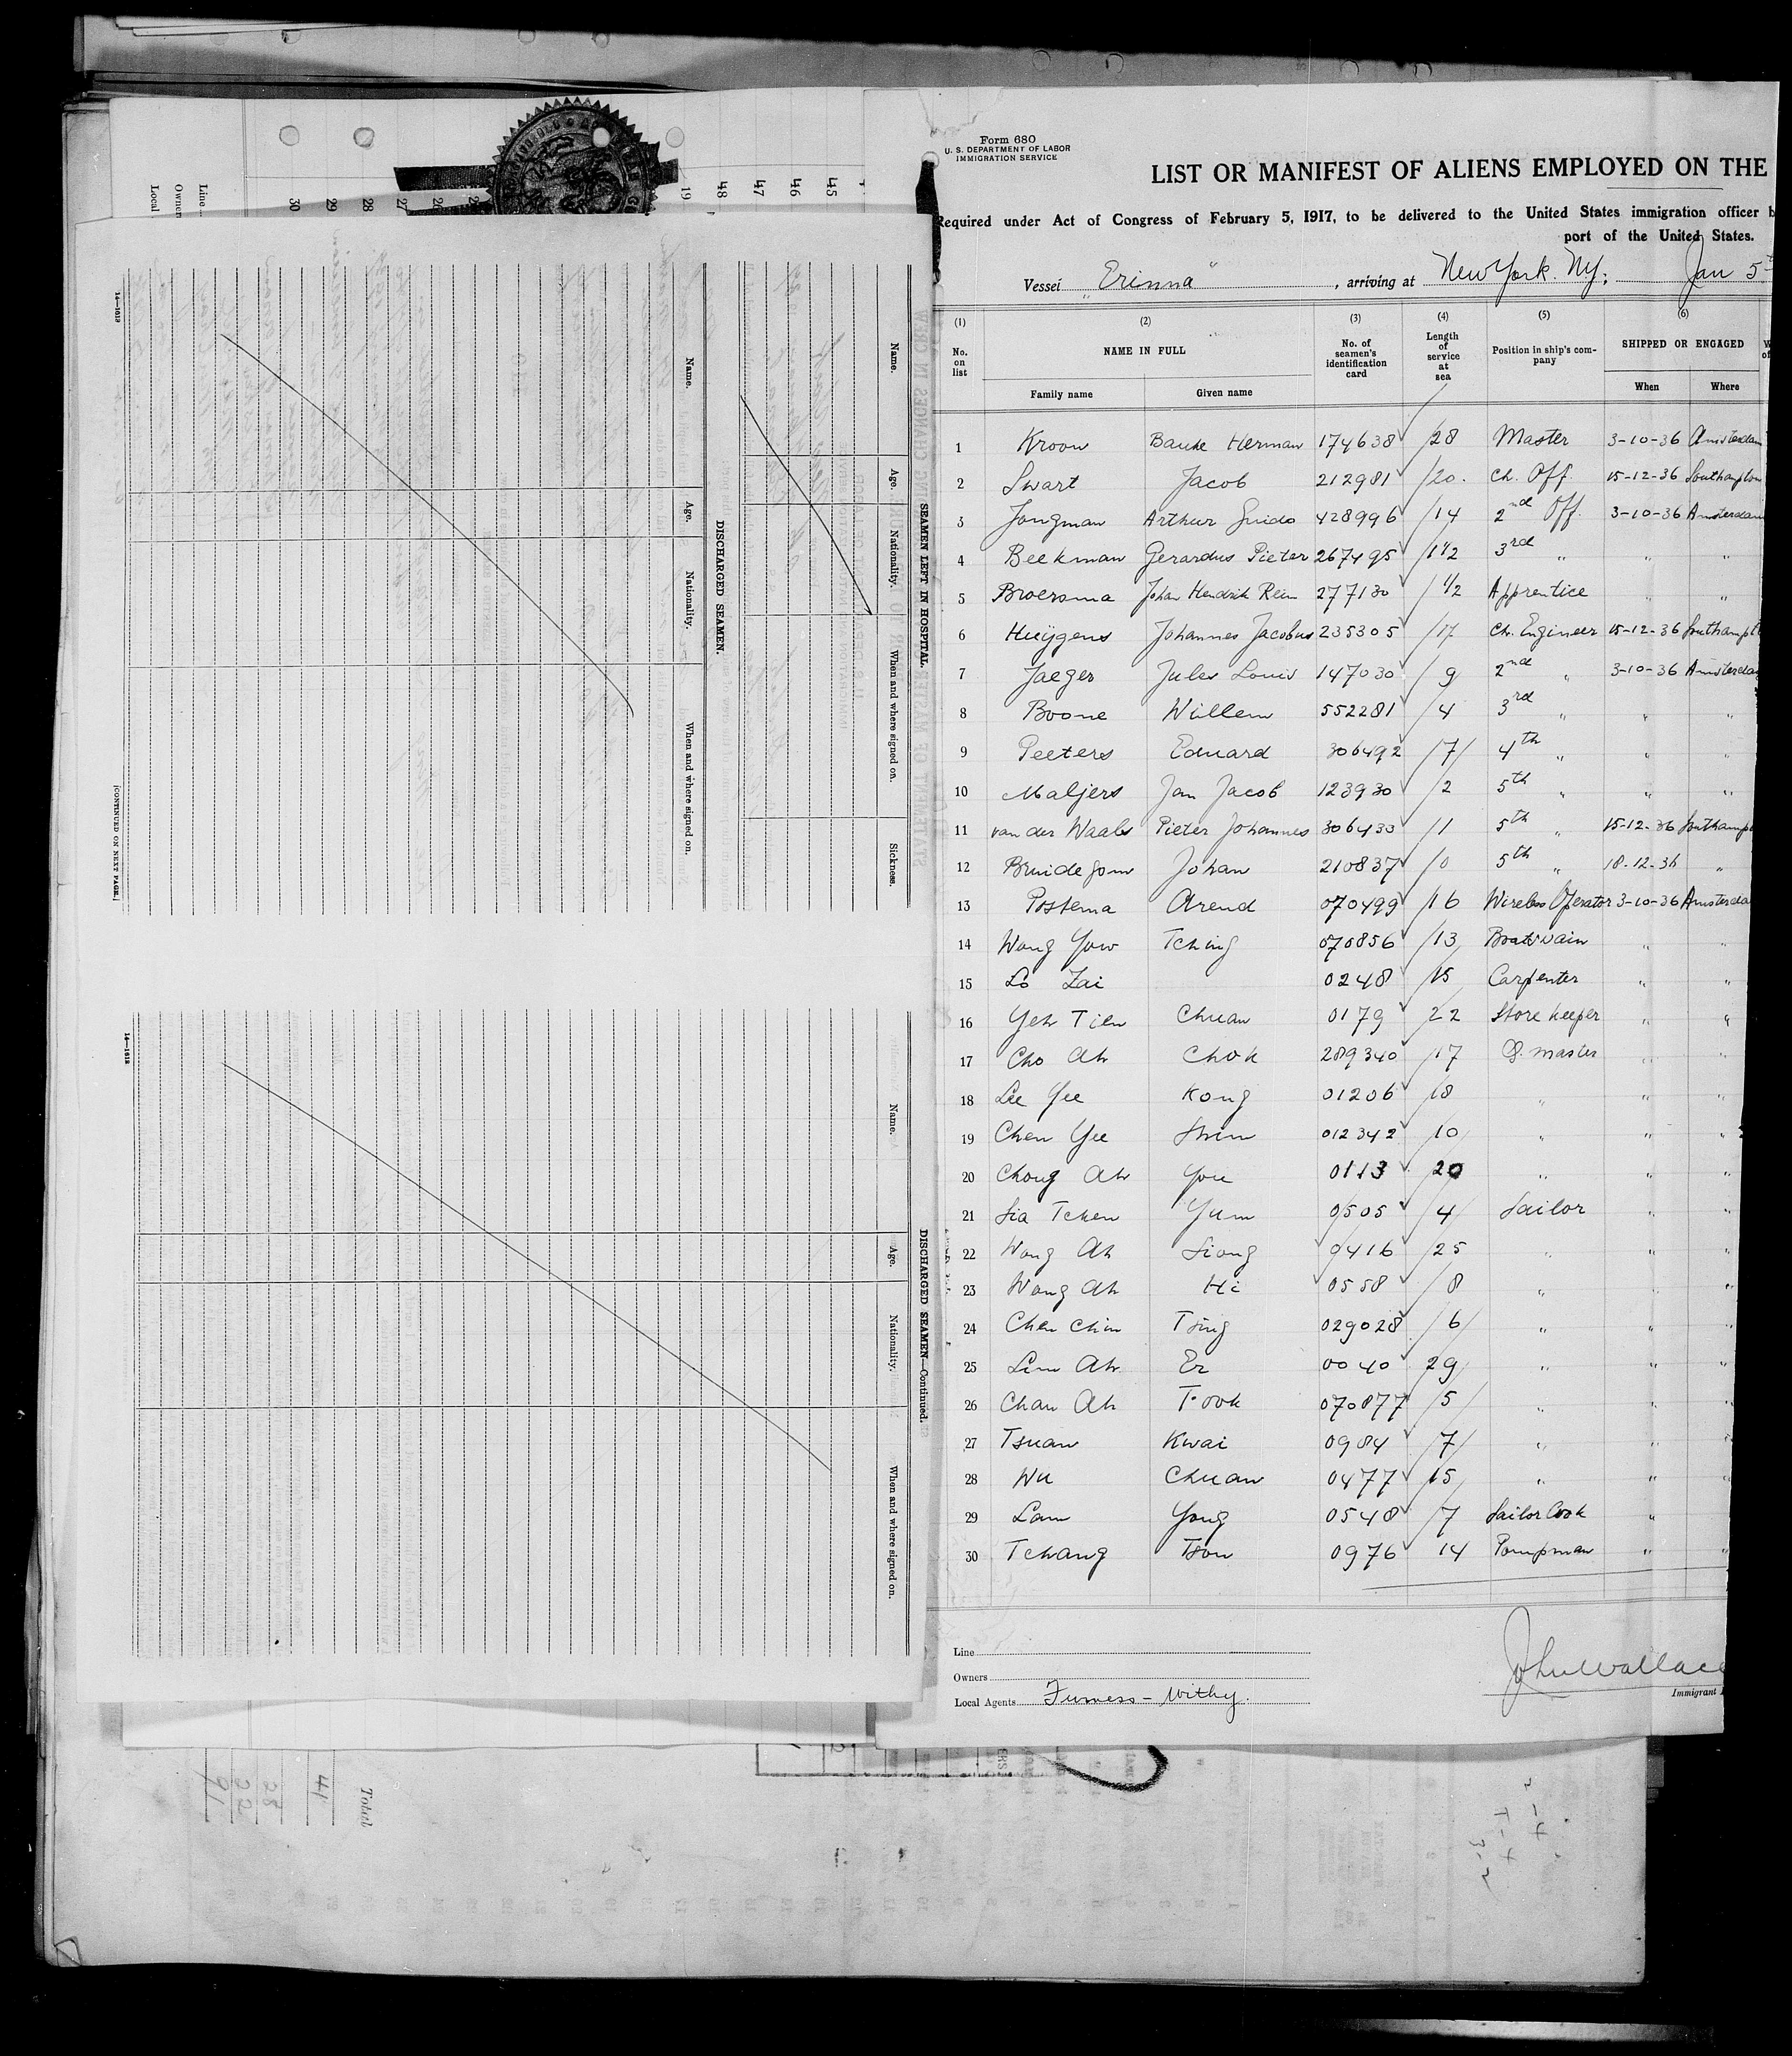 Line
Owner
Local
30
29
28
27
26
19
48
47
46
45
SEAMEN LEFT IN HOSPITAL.
Name.
Age.
Nationality.
When and where signed on.
Sickness.
DISCHARGED SEAMEN.
Name.
Age.
Nationality.
When and where signed on.
14—1613
[CONTINUED ON NEXT PAGE.]
DISCHARGED SEAMEN—Continued.
Name.
Age.
Nationality.
When and where signed on.
14—1613
Form 680
U. S. DEPARTMENT OF LABOR
IMMIGRATION SERVICE
LIST OR MANIFEST OF ALIENS EMPLOYED ON THE
Required under Act of Congress of February 5, 1917, to be delivered to the United States immigration officer b
port of the United States.
Vessel "Erinna" , arriving at New York. NY; Jan 5th
(1) (2) (3) (4) (5) (6)
No. on list NAME IN FULL No. of seamen's identification card Length of service at sea Position in ship's company SHIPPED OR ENGAGED
Family name Given name When Where
1 Kroon Bauke Herman 174638 28 Master 3-10-36 Amsterdam
2 Swart Jacob 212981 20. Ch. Off. 15-12-36 Southampton
3 Jongman Arthur Guido 428996 14 2nd Off. 3-10-36 Amsterdam
4 Beekman Gerardus Pieter 267495 1 1/2 3rd " " "
5 Broersma Johan Hendrik Rein 277130 1/2 Apprentice " "
6 Huÿgens Johannes Jacobus 235305 17 Ch. Engineer 15-12-36 Southampt
7 Jaeger Jules Louis 147030 9 2nd " 3-10-36 Amsterdam
8 Boone Willem 552281 4 3rd " " "
9 Peeters Eduard 306492 7 4th " " "
10 Maljers Jan Jacob 123930 2 5th " " "
11 van der Waals Pieter Johannes 306433 1 5th " 15-12-36 Southamp
12 Bruidegom Johan 210837 0 5th " 18-12-36 "
13 Postema Arend 070499 16 Wireless Operator 3-10-36 Amsterda
14 Wong Yow Tching 070856 13 Boatswain " "
15 Lo Zai 0248 15 Carpenter " "
16 Yeh Tien Chuan 0179 22 Store keeper " "
17 Cho Ah Chok 289340 17 Q. master " "
18 Lee Yee Kong 01206 18 " " "
19 Chen Yee Shin 012342 10 " " "
20 Chong Ah You 0113 20 " " "
21 Sia Tchen Yum 0505 4 Sailor " "
22 Wong Ah Siong 0416 25 " " "
23 Wong Ah Hi 0558 8 " " "
24 Chen Chin Tsing 029028 6 " " "
25 Lim Ah Er 0040 29 " " "
26 Chan Ah Took 070877 5 " " "
27 Tsuan Kwai 0984 7 " " "
28 Wu Chuan 0477 15 " " "
29 Lam Yong 0548 7 Sailor Cook " "
30 Tchang Tson 0976 14 Pompman " "
Line
Owners
Local Agents Furness - Withy.
John Wallace
Immigrant
Total
41
28
22
91